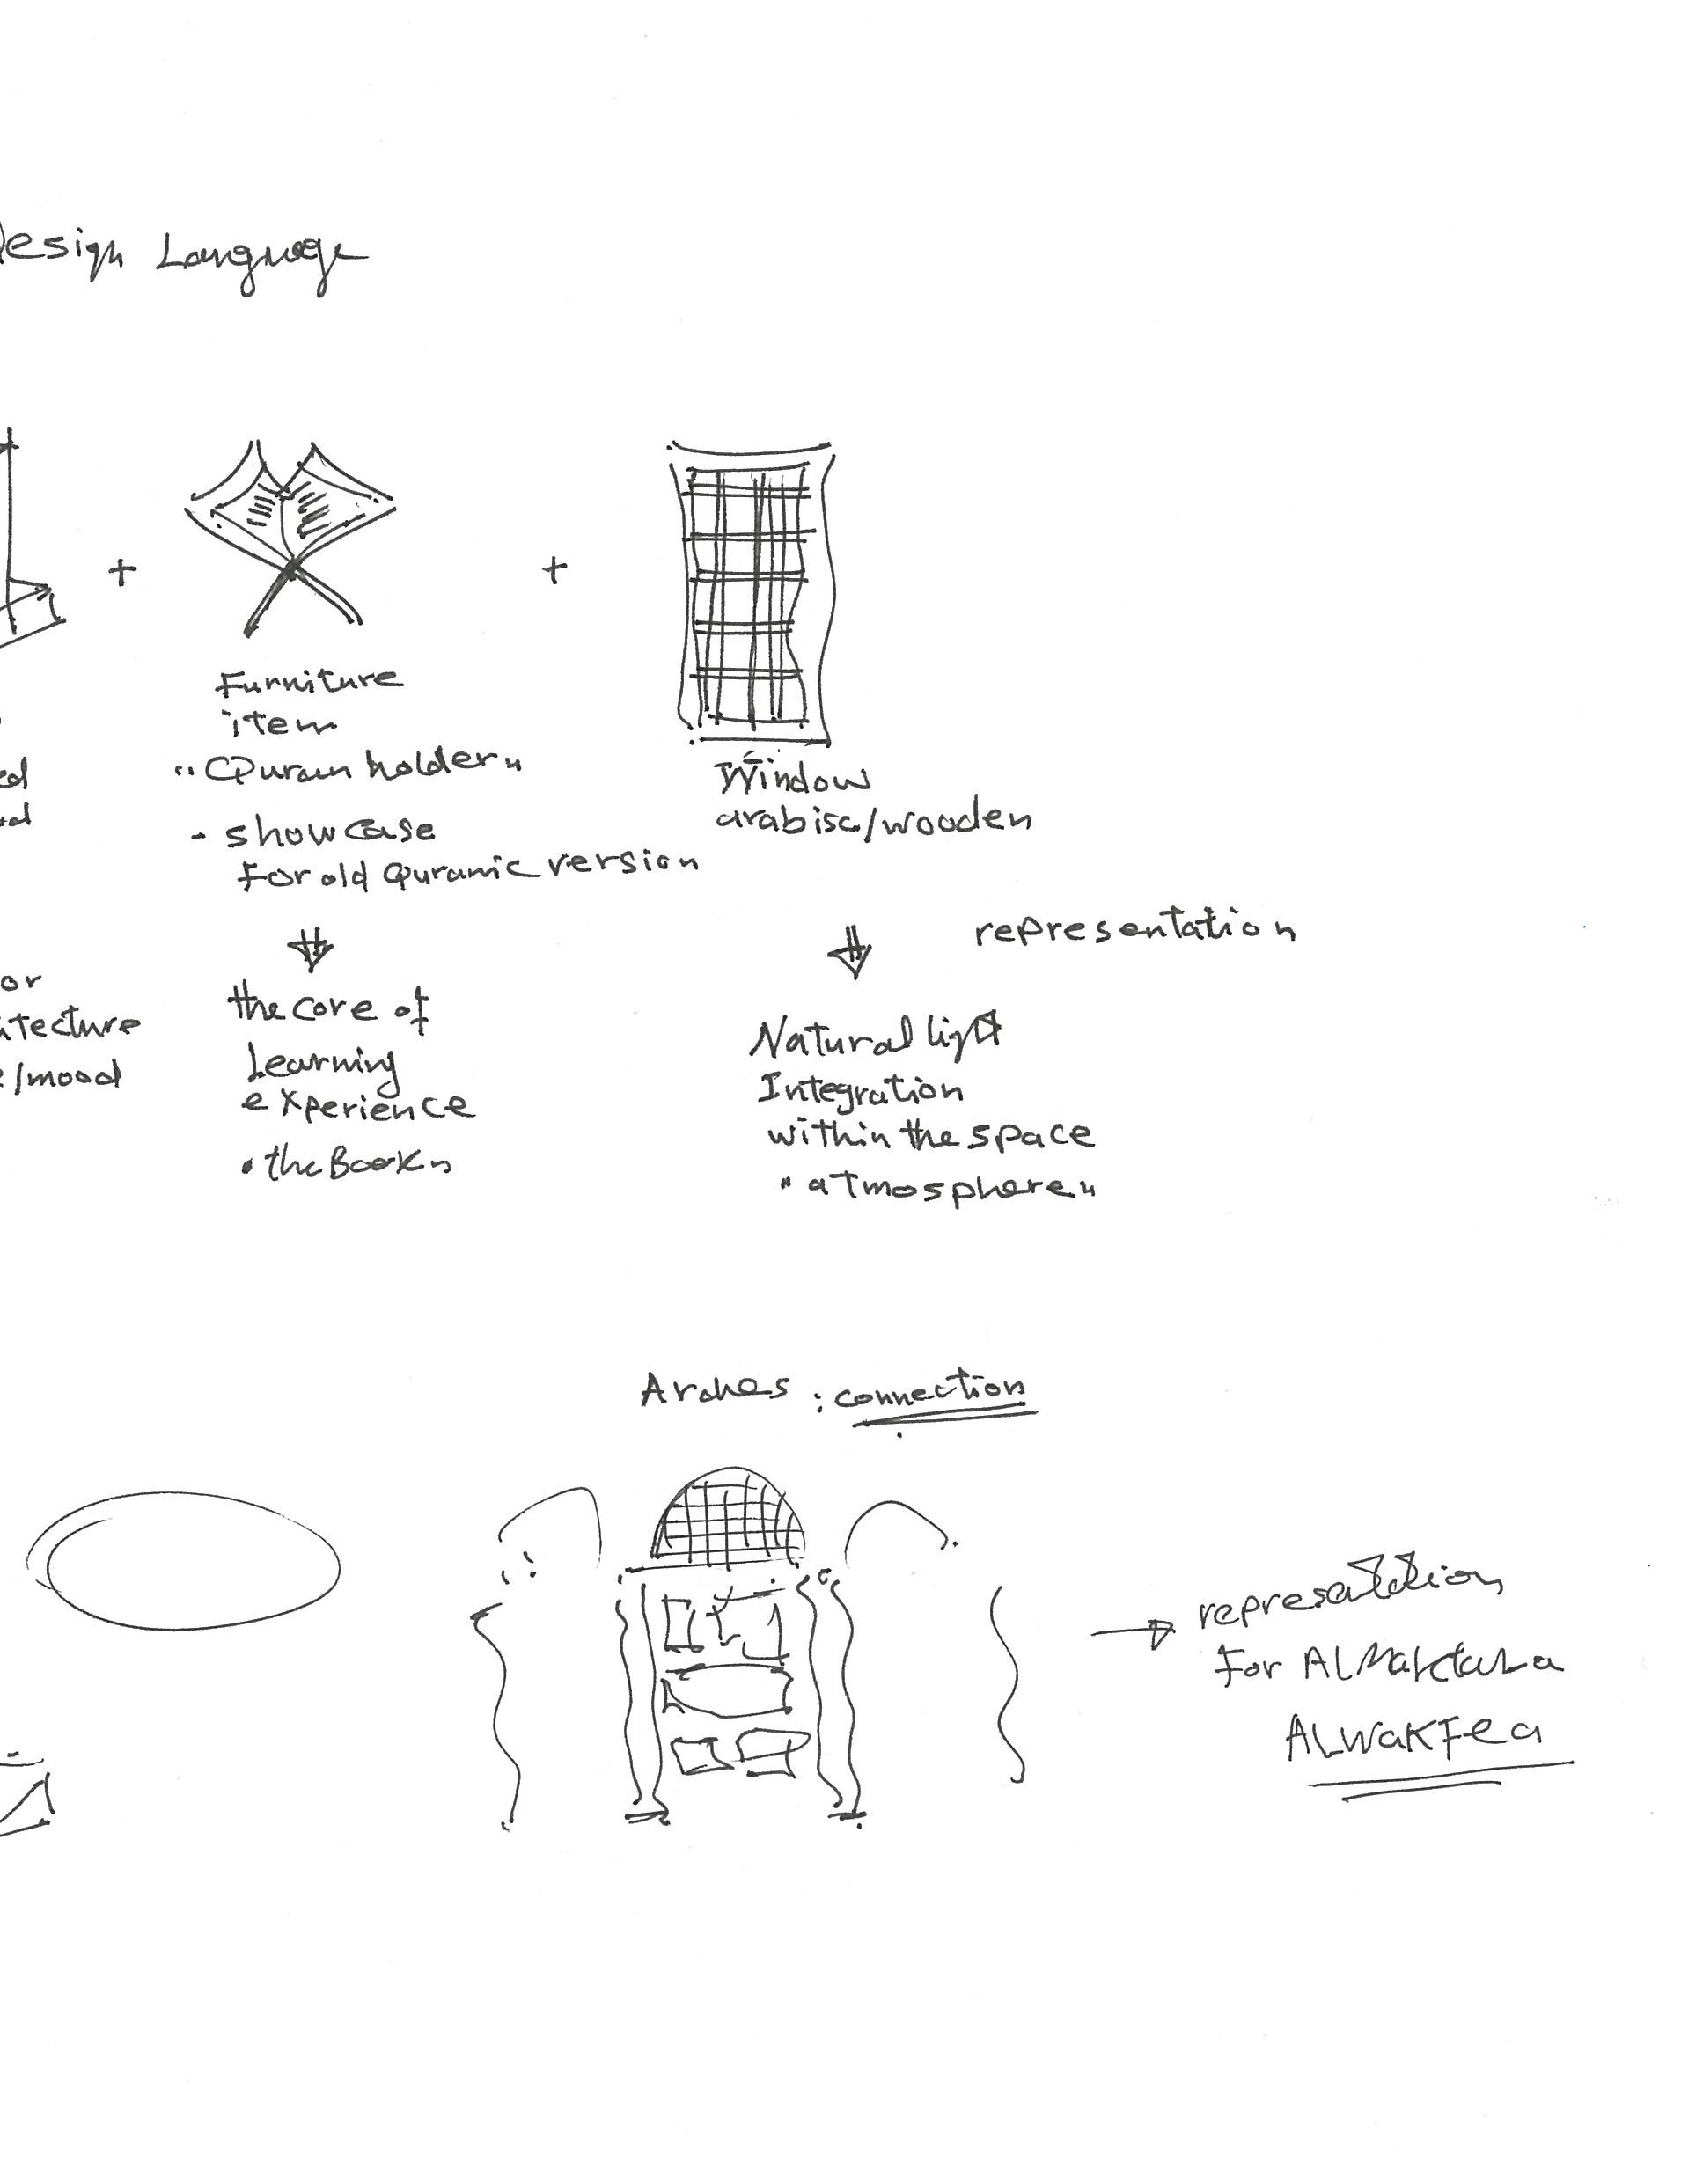 Design Language
+
+
Furniture
item
"Quran holder"
- showcase
For old Quranic version
Window
arabisc/wooden
representation
or
itecture
/mood
the core of
Learning
experience
"the Book"
Natural light
Integration
within the space
"atmosphere"
Arches : connection
representation
For ALMaktaba
ALWAKFea